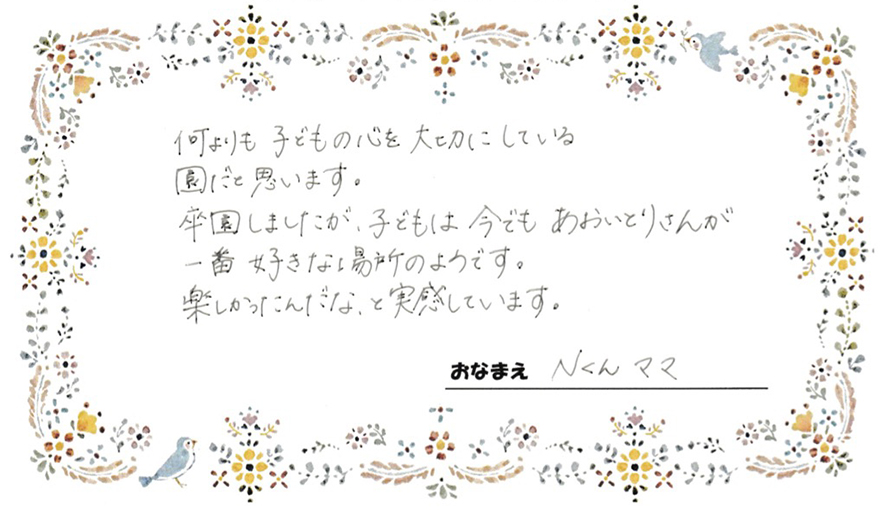 何よりも 子どもの心を 大切にしている
園だと思います。
卒園しましたが、子どもは 今でも あおいとりさんが
一番 好きな場所のようです。
楽しかったんだな、と実感しています。
おなまえ Nくん ママ